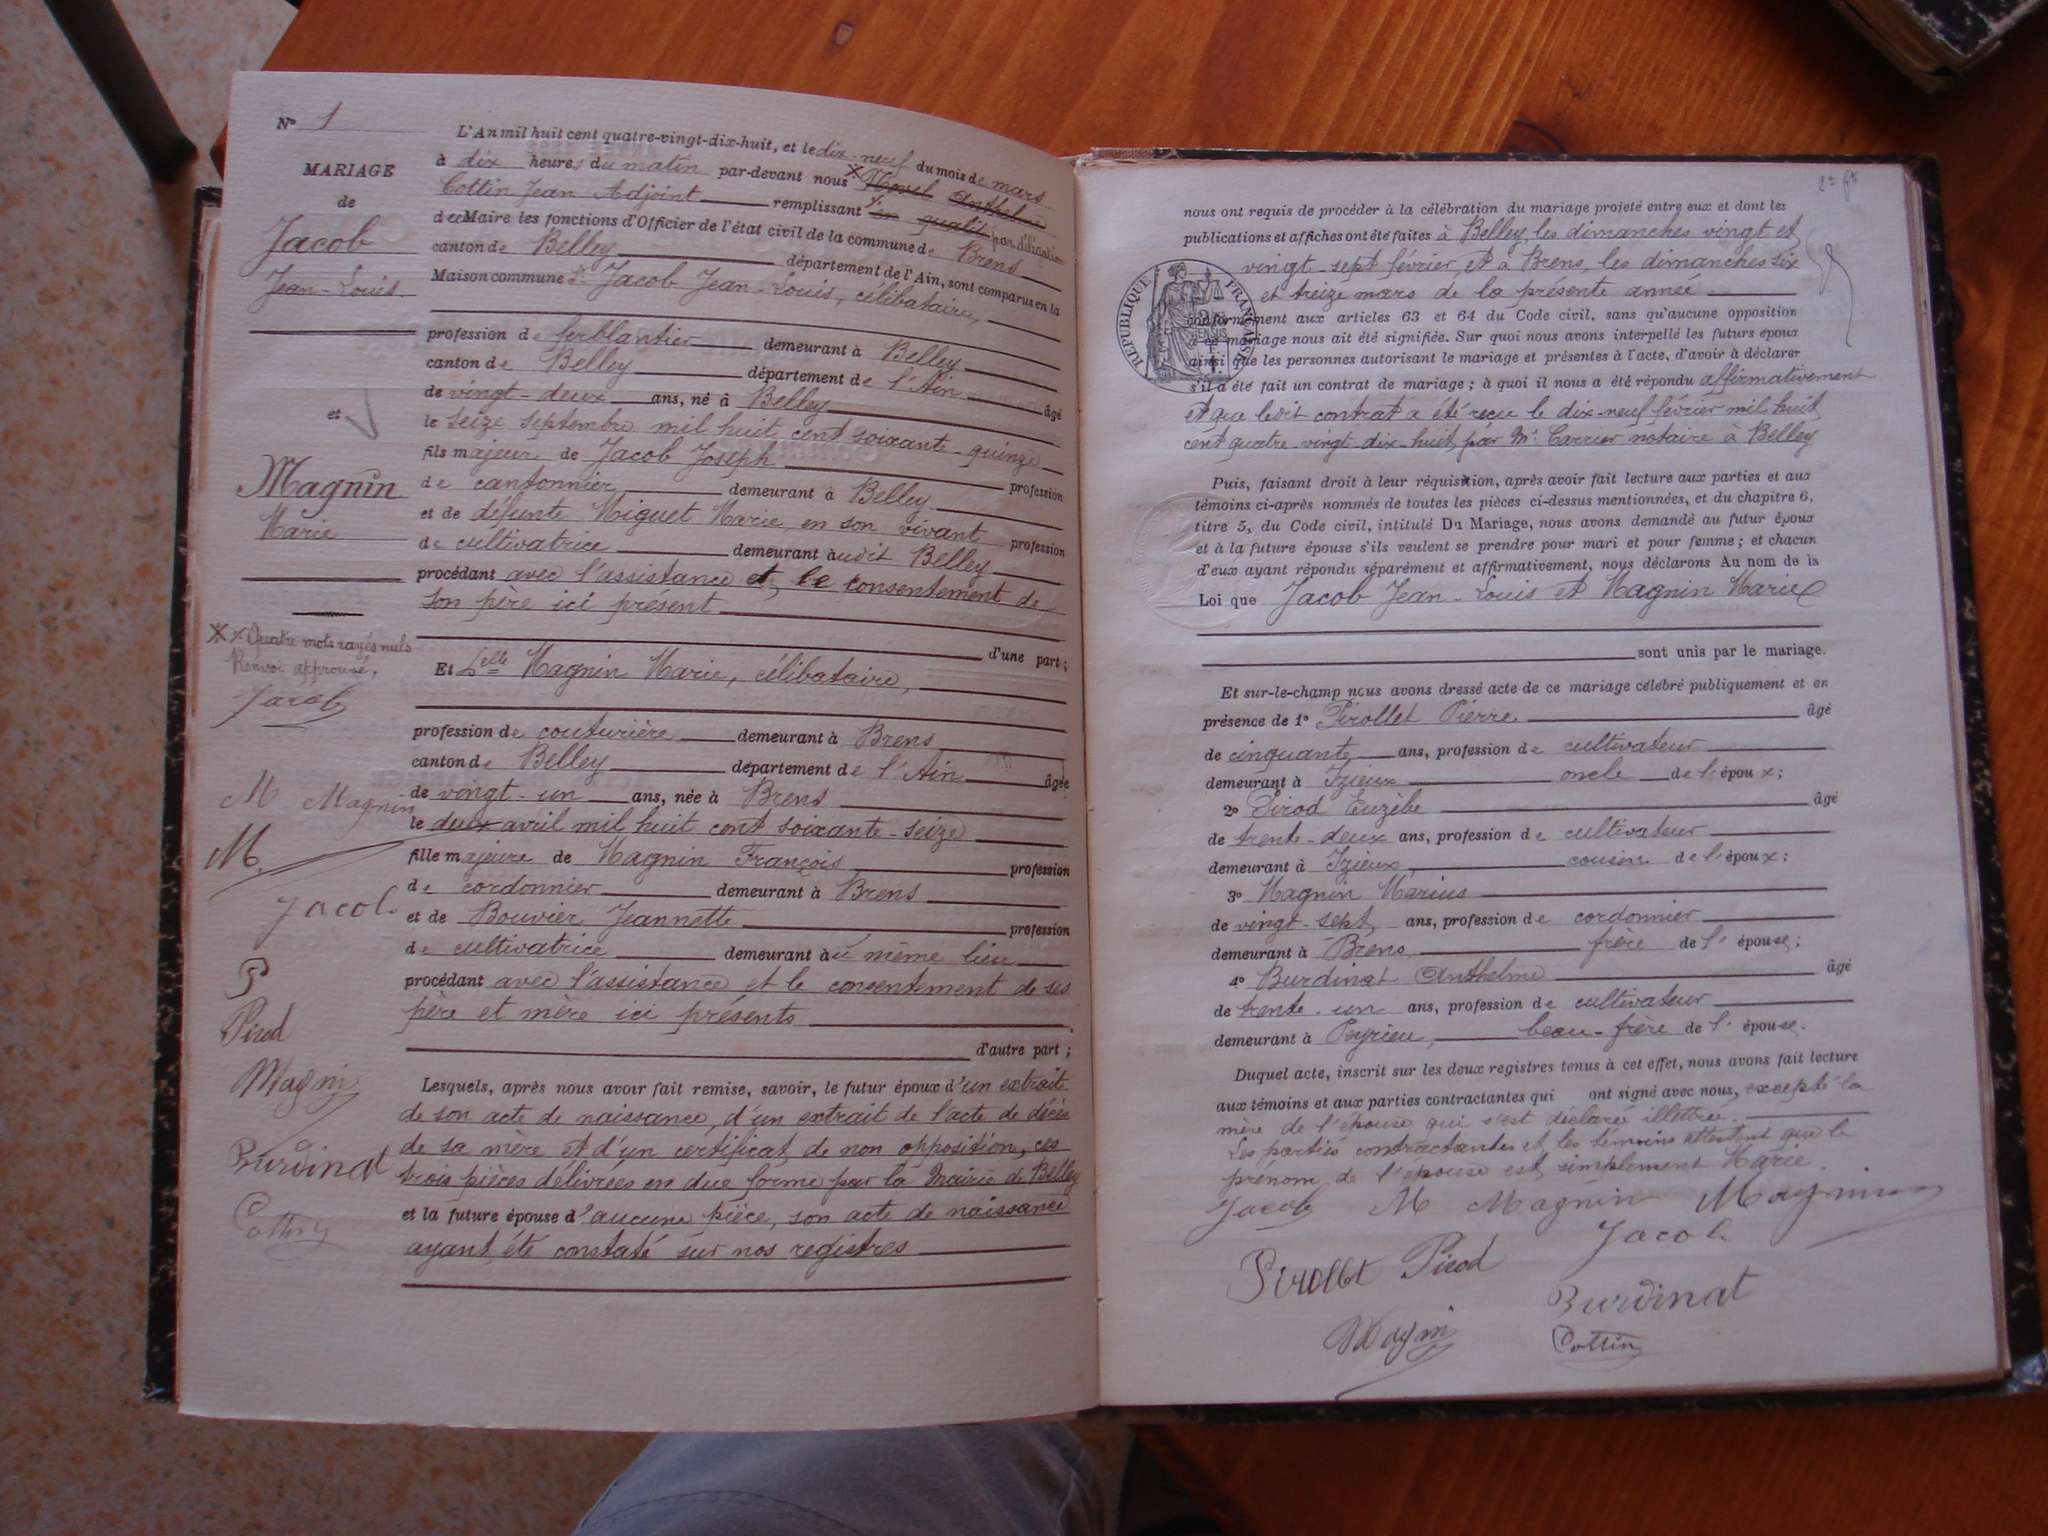 N° 1
MARIAGE
de
Jacob
Jean-Louis
et
Magnin
Marie
x Quatre mots rayés nuls
Renvoi approuvé.
Jacob
M Magnin
M.
Jacob
P
Pirod
Magnin
Burdinat
Cottin
L'An mil huit cent quatre-vingt-dix-huit, et le dix-neuf du mois de mars
à dix heures du matin par-devant nous x Anthelme
Cottin Jean Adjoint remplissant en qualité par délégation
du Maire les fonctions d'Officier de l'état civil de la commune de Brens
canton de Belley département de l'Ain, sont comparus en la
Maison commune Sr Jacob Jean-Louis, célibataire,
profession de ferblantier demeurant à Belley
canton de Belley département de l'Ain âgé
de vingt-deux ans, né à Belley
le seize septembre mil huit cent soixante-quinze
fils majeur de Jacob Joseph profession
de cantonnier demeurant à Belley
et de défunte Miguet Marie, en son vivant profession
de cultivatrice demeurant audit Belley
procédant avec l'assistance et le consentement de
son père ici présent
d'une part;
Et Delle Magnin Marie, célibataire,
profession de couturière demeurant à Brens
canton de Belley département de l'Ain âgée
de vingt-un ans, née à Brens
le deux avril mil huit cent soixante-seize
fille majeure de Magnin François profession
de cordonnier demeurant à Brens
et de Bouvier Jeannette profession
de cultivatrice demeurant au même lieu
procédant avec l'assistance et le consentement de ses
père et mère ici présents
d'autre part;
Lesquels, après nous avoir fait remise, savoir, le futur époux d'un extrait
de son acte de naissance, d'un extrait de l'acte de décès
de sa mère et d'un certificat de non opposition, ces
trois pièces délivrées en due forme par la Mairie de Belley
et la future épouse d'aucune pièce, son acte de naissance
ayant été constaté sur nos registres
nous ont requis de procéder à la célébration du mariage projeté entre eux et dont les
publications et affiches ont été faites à Belley, les dimanches vingt et
vingt-sept février, et à Brens, les dimanches six
et treize mars de la présente année
RÉPUBLIQUE FRANÇAISE
conformément aux articles 63 et 64 du Code civil, sans qu'aucune opposition
à ce mariage nous ait été signifiée. Sur quoi nous avons interpellé les futurs époux
ainsi que les personnes autorisant le mariage et présentes à l'acte, d'avoir à déclarer
s'il a été fait un contrat de mariage; à quoi il nous a été répondu affirmativement
et que ledit contrat a été reçu le dix-neuf février mil huit
cent quatre-vingt-dix-huit par Me Carrier notaire à Belley
Puis, faisant droit à leur réquisition, après avoir fait lecture aux parties et aux
témoins ci-après nommés de toutes les pièces ci-dessus mentionnées, et du chapitre 6,
titre 5, du Code civil, intitulé Du Mariage, nous avons demandé au futur époux
et à la future épouse s'ils veulent se prendre pour mari et pour femme; et chacun
d'eux ayant répondu séparément et affirmativement, nous déclarons Au nom de la
Loi que Jacob Jean-Louis et Magnin Marie
sont unis par le mariage.
Et sur-le-champ nous avons dressé acte de ce mariage célébré publiquement et en
présence de 1° Pirollet Pierre âgé
de cinquante ans, profession de cultivateur
demeurant à Izieux oncle de l'époux;
2° Pirod Euzèbe âgé
de trente-deux ans, profession de cultivateur
demeurant à Izieux cousin de l'époux;
3° Magnin Marius
de vingt-sept ans, profession de cordonnier
demeurant à Brens, frère de l'épouse;
4° Burdinat Anthelme âgé
de trente-un ans, profession de cultivateur
demeurant à Peyrieu, beau-frère de l'épouse.
Duquel acte, inscrit sur les deux registres tenus à cet effet, nous avons fait lecture
aux témoins et aux parties contractantes qui ont signé avec nous, excepté la
mère de l'épouse qui s'est déclarée illettrée.
Les parties contractantes et les témoins attestent que le
prénom de l'épouse est simplement Marie.
Jacob M Magnin Magnin
Jacob
Pirollet Pirod
Burdinat
Magnin
Cottin